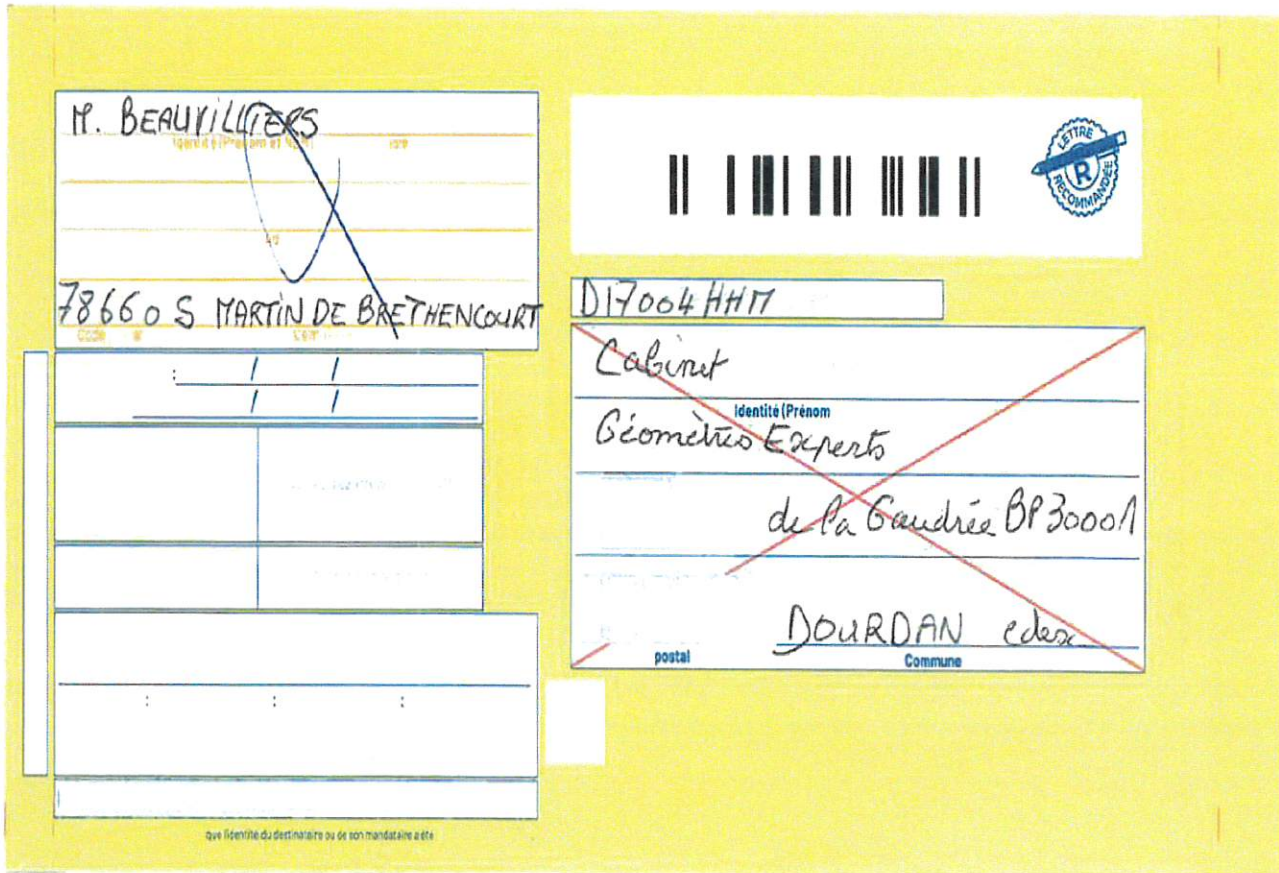 M. BEAUVILLIERS
78660 S MARTIN DE BRETHENCOURT
LETTRE
R
RECOMMANDÉE
D17004HHM
Cabinet
Identité (Prénom
Géomètres Experts
de la Gaudrée BP 30001
DOURDAN cdex
postal Commune
que l'identité du destinataire ou de son mandataire a été